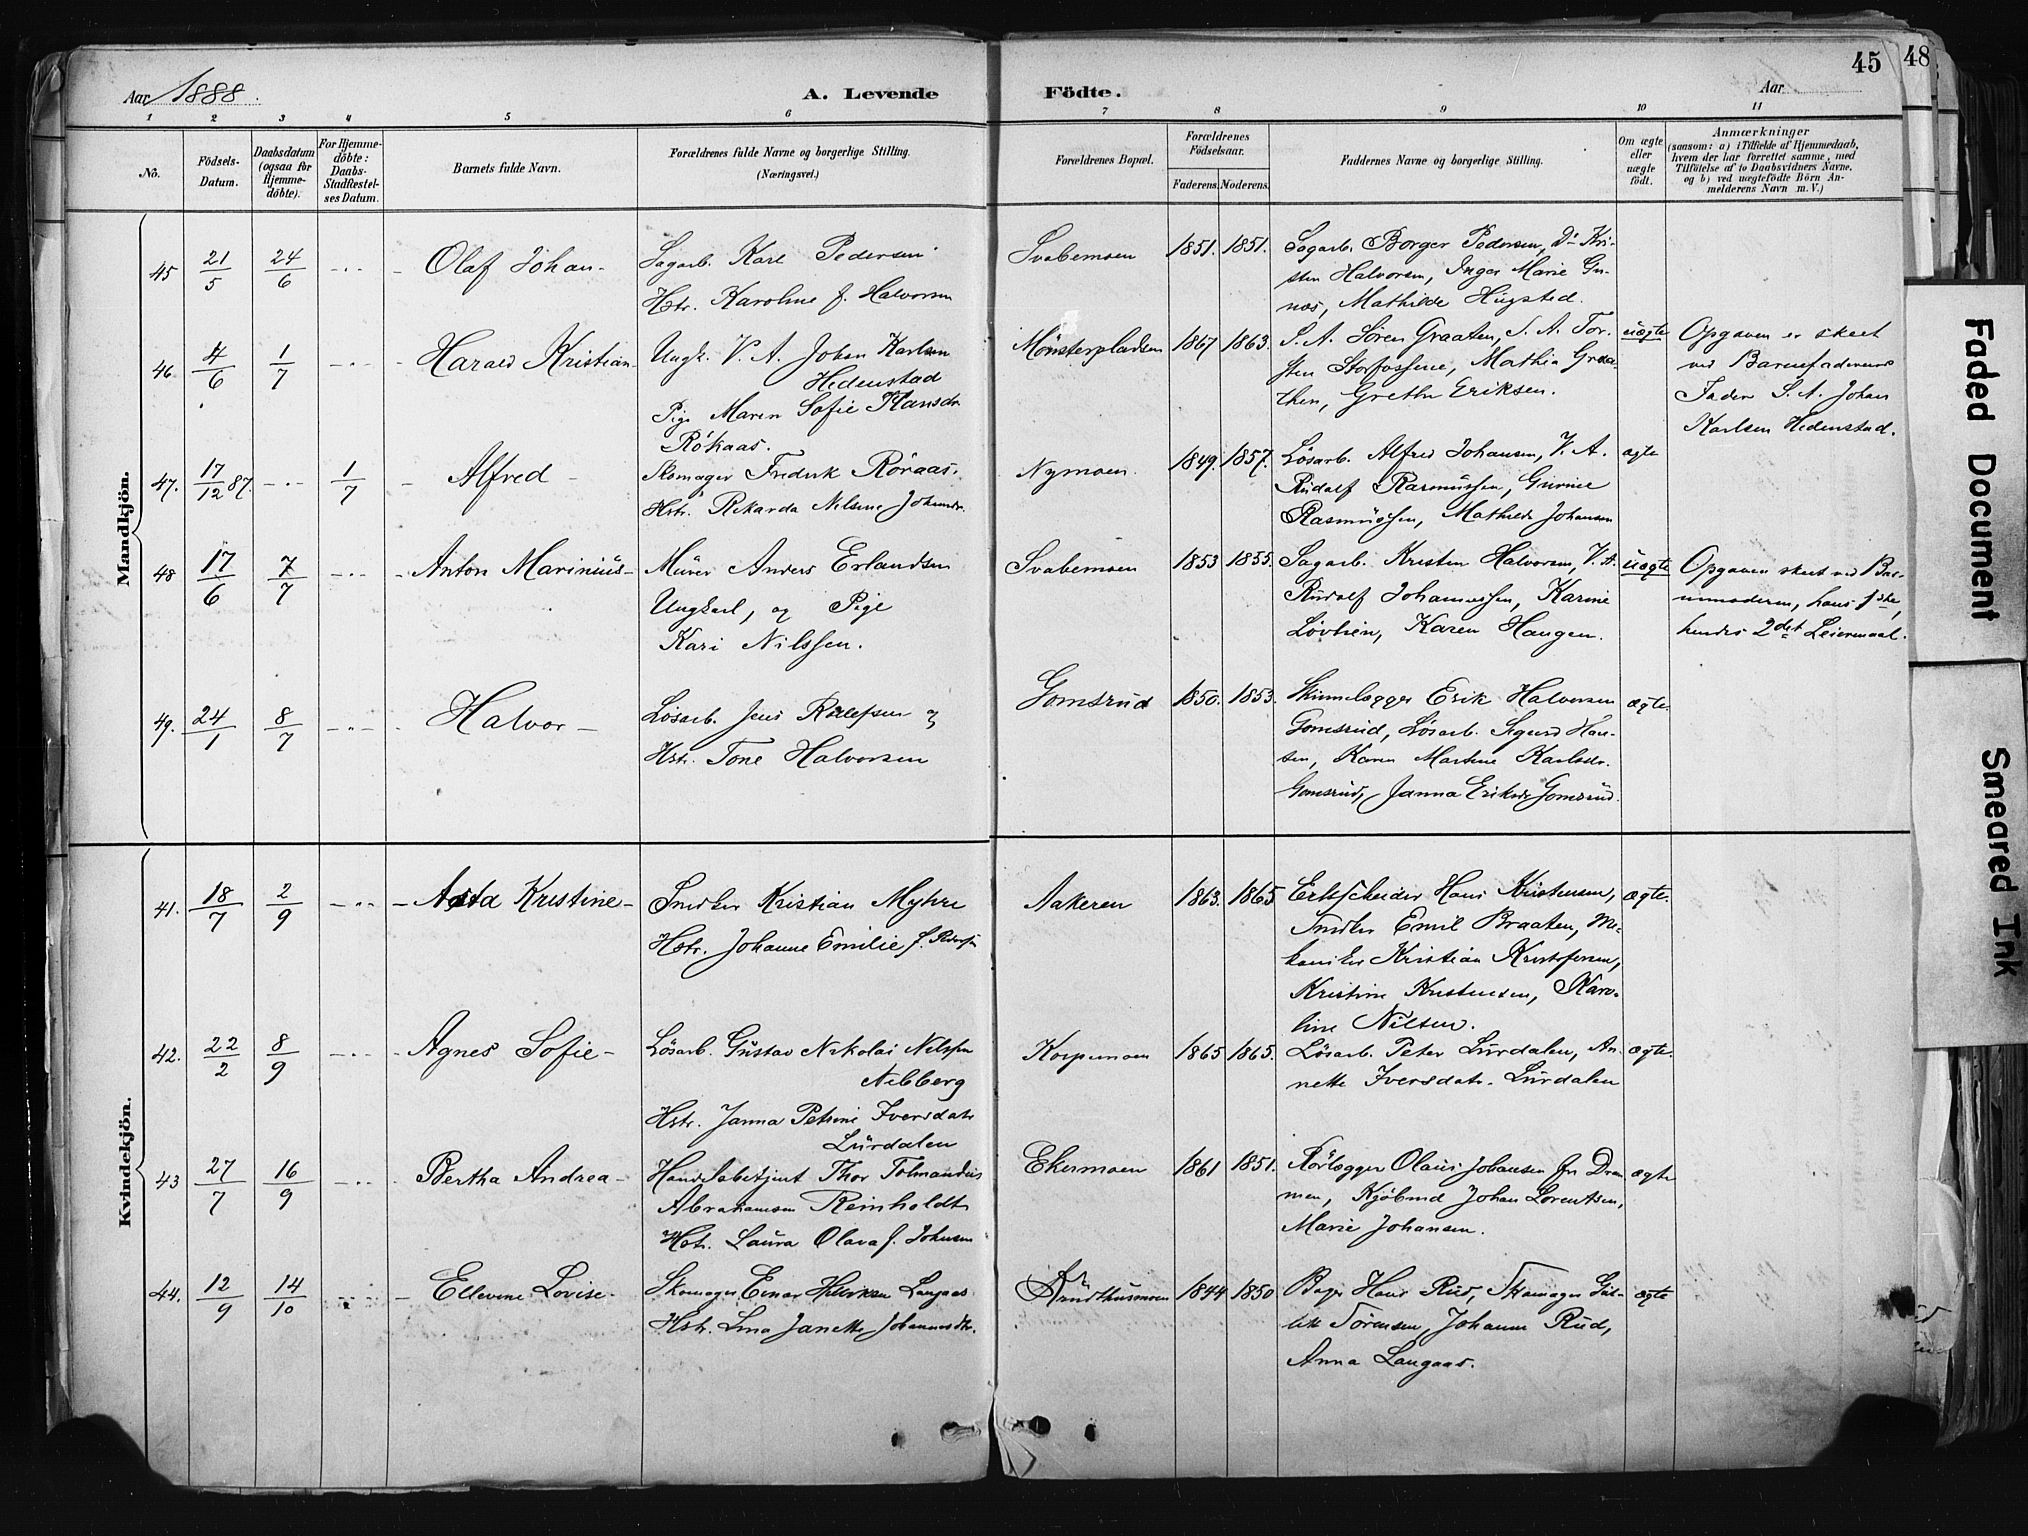 Aar 1888.
A. Levende
Födte.
Aar
45
48
1 2 3 4 5 6 7 8 9 10 11
No.
Födsels-Datum.
Daabsdatum (ogsaa for Hjemme-döbte).
For Hjemme-döbte: Daabs-Stadfæstel-ses Datum.
Barnets fulde Navn.
Forældrenes fulde Navne og borgerlige Stilling.
(Næringsvei.)
Forældrenes Bopæl.
Forældrenes Födselsaar.
Faderens. Moderens.
Faddernes Navne og borgerlige Stilling.
Om ægte eller uægte födt.
Anmærkninger
(saasom: a) i Tilfælde af Hjemmedaab,
hvem der har forrettet samme, med
Tilföielse af to Daabsvidners Navne,
og b) ved uægtefödte Börn An-
melderens Navn m. V.)
Mandkjön.
45 21/5 24/6 Olaf Johan
Sagarb. Karl Pedersen
Hstr. Karoline f. Halvorsen
Svabemoen 1851. 1851.
Sagarb. Borger Pedersen, Do Kri-
sten Halvorsen, Inger Marie Gu-
nes, Mathilde Hugsted.
46. 4/6 1/7 Harald Kristian
Ungk. V. A. Johan Karlsen
Hedenstad
Pige Maren Sofie Hansdr.
Rökaas.
Mönsterpladsen 1867 1863.
S. A. Sören Graaten, S. A. Tor-
sten Storfossene, Mathia Graa-
then, Grethe Eriksen.
uægte
Opgaven er skeet
ved Barnefaderens
Fader S. A. Johan
Karlsen Hedenstad.
47. 17/12 87. 1/7 Alfred
Skomager Fredrik Röraas.
Hstr. Rikarda Nilsine Johansdr.
Nymoen. 1849. 1857.
Lösarb. Alfred Johansen, V. A.
Rudolf Rasmussen, Gurine
Rasmussen, Mathilde Johansen
ægte
48 17/6 7/7 Anton Marinius
Murer Anders Erlandsen
Ungkarl, og Pige
Kari Nilssen.
Svabemoen 1853 1855.
Sagarb. Kristen Halvorsen, V. A.
Rudolf Johannessen, Karine
Lövlien, Karen Haugen.
uægte
Opgaven skeet ved Bar-
nemoderen, hans 1ste,
hendes 2det Leiermaal.
49. 24/1 8/7 Halvor
Lösarb. Jens Rolefsen og
Hstr. Tone Halvorsen
Gomsrud 1850. 1853.
Skinnelægger Erik Halvorsen
Gomsrud, Lösarb. Sigurd Han-
sen, Karen Martine Karlsdr.
Gomsrud, Janna Eriksdr Gomsrud.
ægte.
Kvindekjön.
41. 18/7 2/9 Asta Kristine
Snedker Kristian Myhre
Hstr. Johanne Emilie f. Pedersen
Aakeren 1863. 1865
Ertsscheider Hans Kristensen,
Snedker Emil Braaten, Me-
kaniker Kristian Kristofersen,
Kristine Kristensen, Karo-
line Nilsen.
ægte.
42. 22/2 8/9 Agnes Sofie
Lösarb. Gustav Nikolai Nilssen
Nebberg
Hstr. Janna Petrine Iversdatr
Lurdalen
Korpemoen 1865 1865.
Lösarb. Peter Lurdalen, An-
nette Iversdatr. Lurdalen
ægte.
43 27/7 16/9 Bertha Andrea
Handelsbetjent Thor
Abrahamsen Reinholdt
Hstr. Laura Olava f. Johnsen
Ekermoen 1861 1851.
Rörlægger Olaus Johansen fra Dram-
men, Kjöbmd Johan Lorentsen,
Marie Johansen.
ægte
44. 12/9 14/10 Ellevine Lovise
Skomager Einar Henriksen Langaas
Hstr. Lina Janette Johannesdtr.
1844 1850
Bager Hans Rud, Skomager Gul-
lik Sörensen, Johanne Rud,
Anna Langaas.
ægte
Faded Document
Smeared Ink